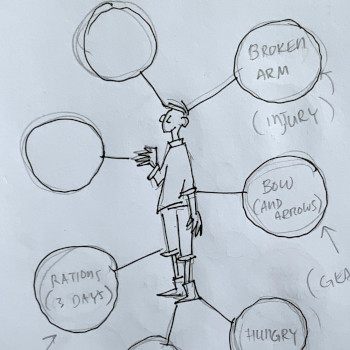 BROKEN
ARM
(INJURY)
BOW
(AND
ARROWS)
RATIONS
(3 DAYS)
HUNGRY